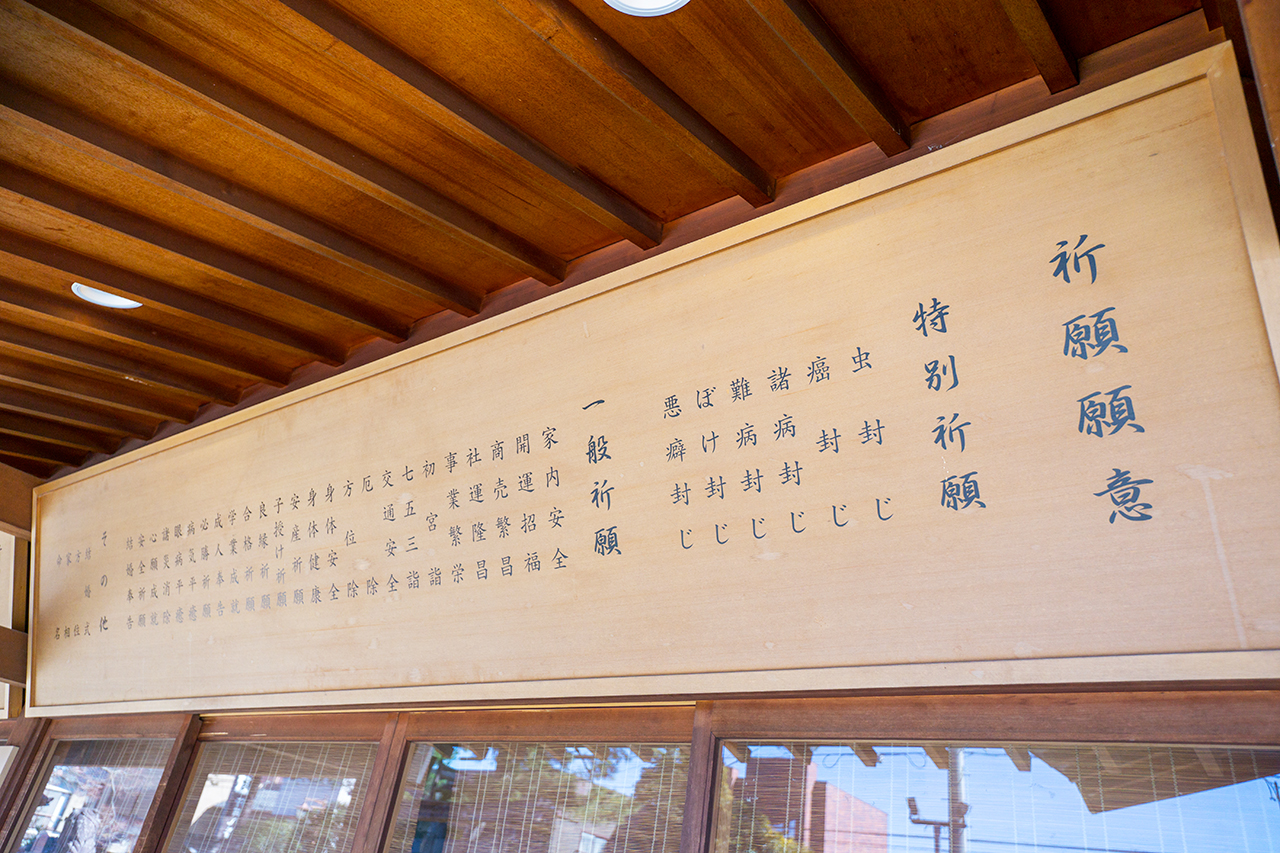 祈願願意
特別祈願
虫封じ
癌封じ
諸病封じ
難病封じ
ぼけ封じ
悪癖封じ
一般祈願
家内安全
開運招福
商売繁昌
社運隆昌
事業繁栄
初宮詣
七五三詣
交通安全
厄除
方位除
身体安全
身体健康
安産祈願
子授け祈願
良縁祈願
合格祈願
学業成就
成人奉告
必勝祈願
病気平癒
眼病平癒
諸災消除
心願成就
安全祈願
結婚奉告
その他
結婚式
方位
家相
命名